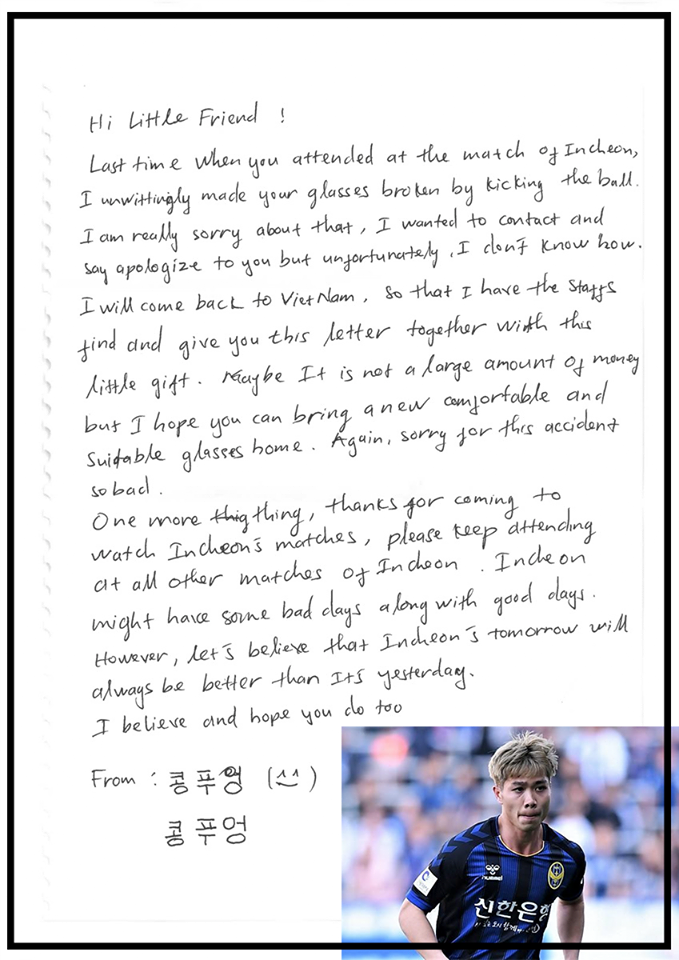 Hi Little Friend !
Last time when you attended at the match of Incheon,
I unwittingly made your glasses broken by kicking the ball.
I am really sorry about that, I wanted to contact and
say apologize to you but unfortunately, I don't know how.
I will come back to VietNam, so that I have the staffs
find and give you this letter together with this
little gift. Maybe It is not a large amount of money
but I hope you can bring a new comfortable and
suitable glasses home. Again, sorry for this accident
so bad.
One more thig thing, thanks for coming to
watch Incheon's matches, please keep attending
at all other matches of Incheon. Incheon
might have some bad days along with good days.
However, let's believe that Incheon's tomorrow will
always be better than its yesterday.
I believe and hope you do too
From : 콩푸엉 (^^)
콩푸엉
hummel
신한은행